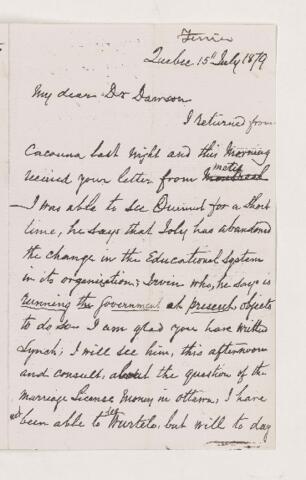 Ferrier
Quebec 15th July 1879
My dear Dr Dawson
I returned from
Cacouna last night and this Morning
Metis
received your letter from Montreal
— I was able to see Ouimet for a Short
time, he says that Joly has abandoned
the change in the Educational System
in its organization; Irvin who, he says is
running the Government at present objects
to do so — I am glad you have written
Lynch; I will see him, this afternoon
and consult, about the question of the
Marriage License Money in Ottawa, I have
not been able to see Wurtele, but will to day